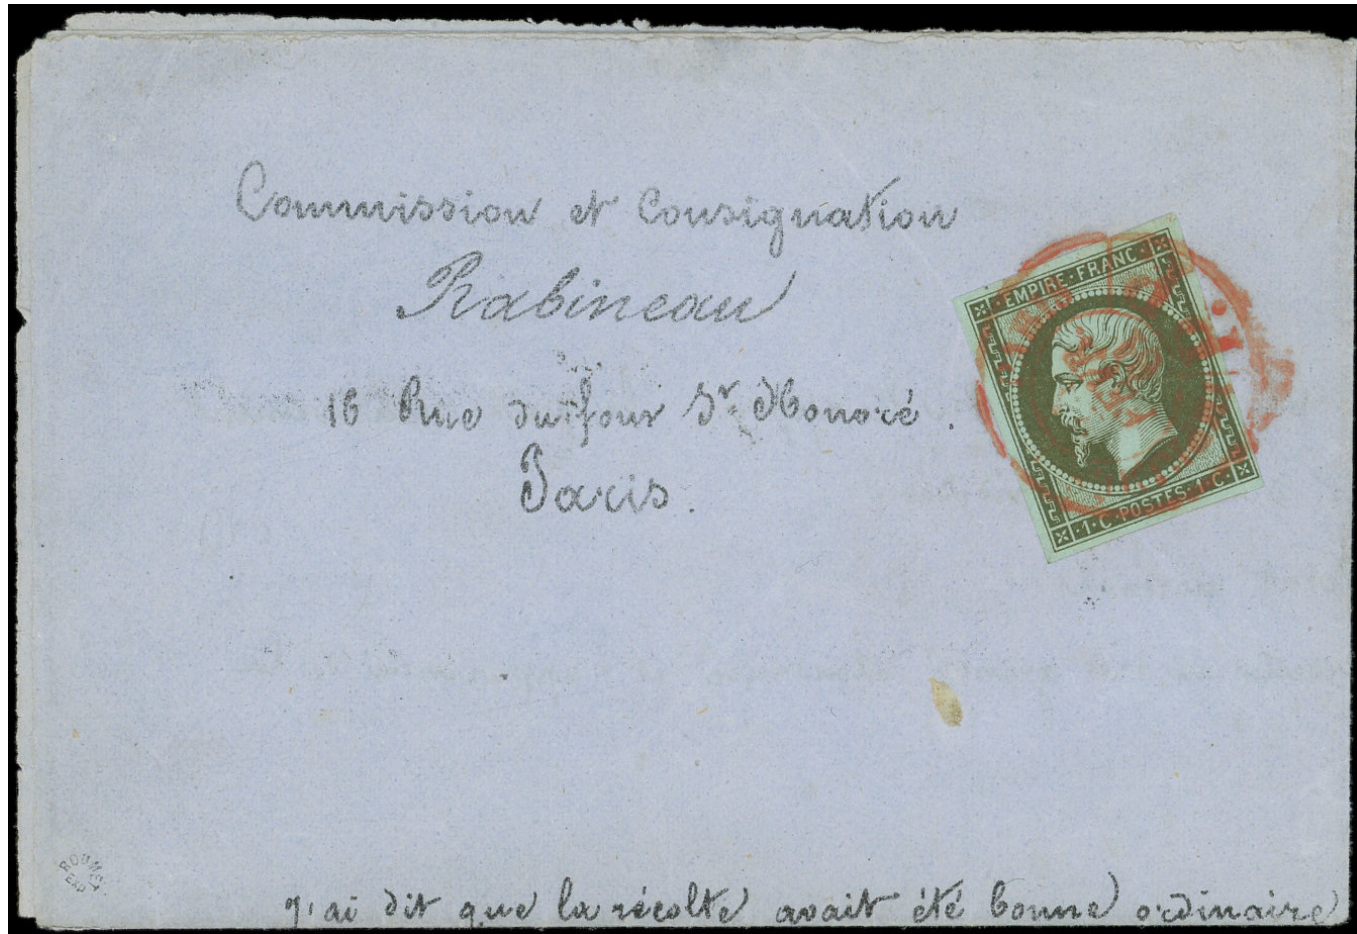 Commission et Consignation
Rabineau
16 Rue du four St. Honoré.
Paris.
EMPIRE·FRANC·
·1·C·POSTES·1·C·
ROUMET
EXP
J'ai dit que la récolte avait été bonne ordinaire